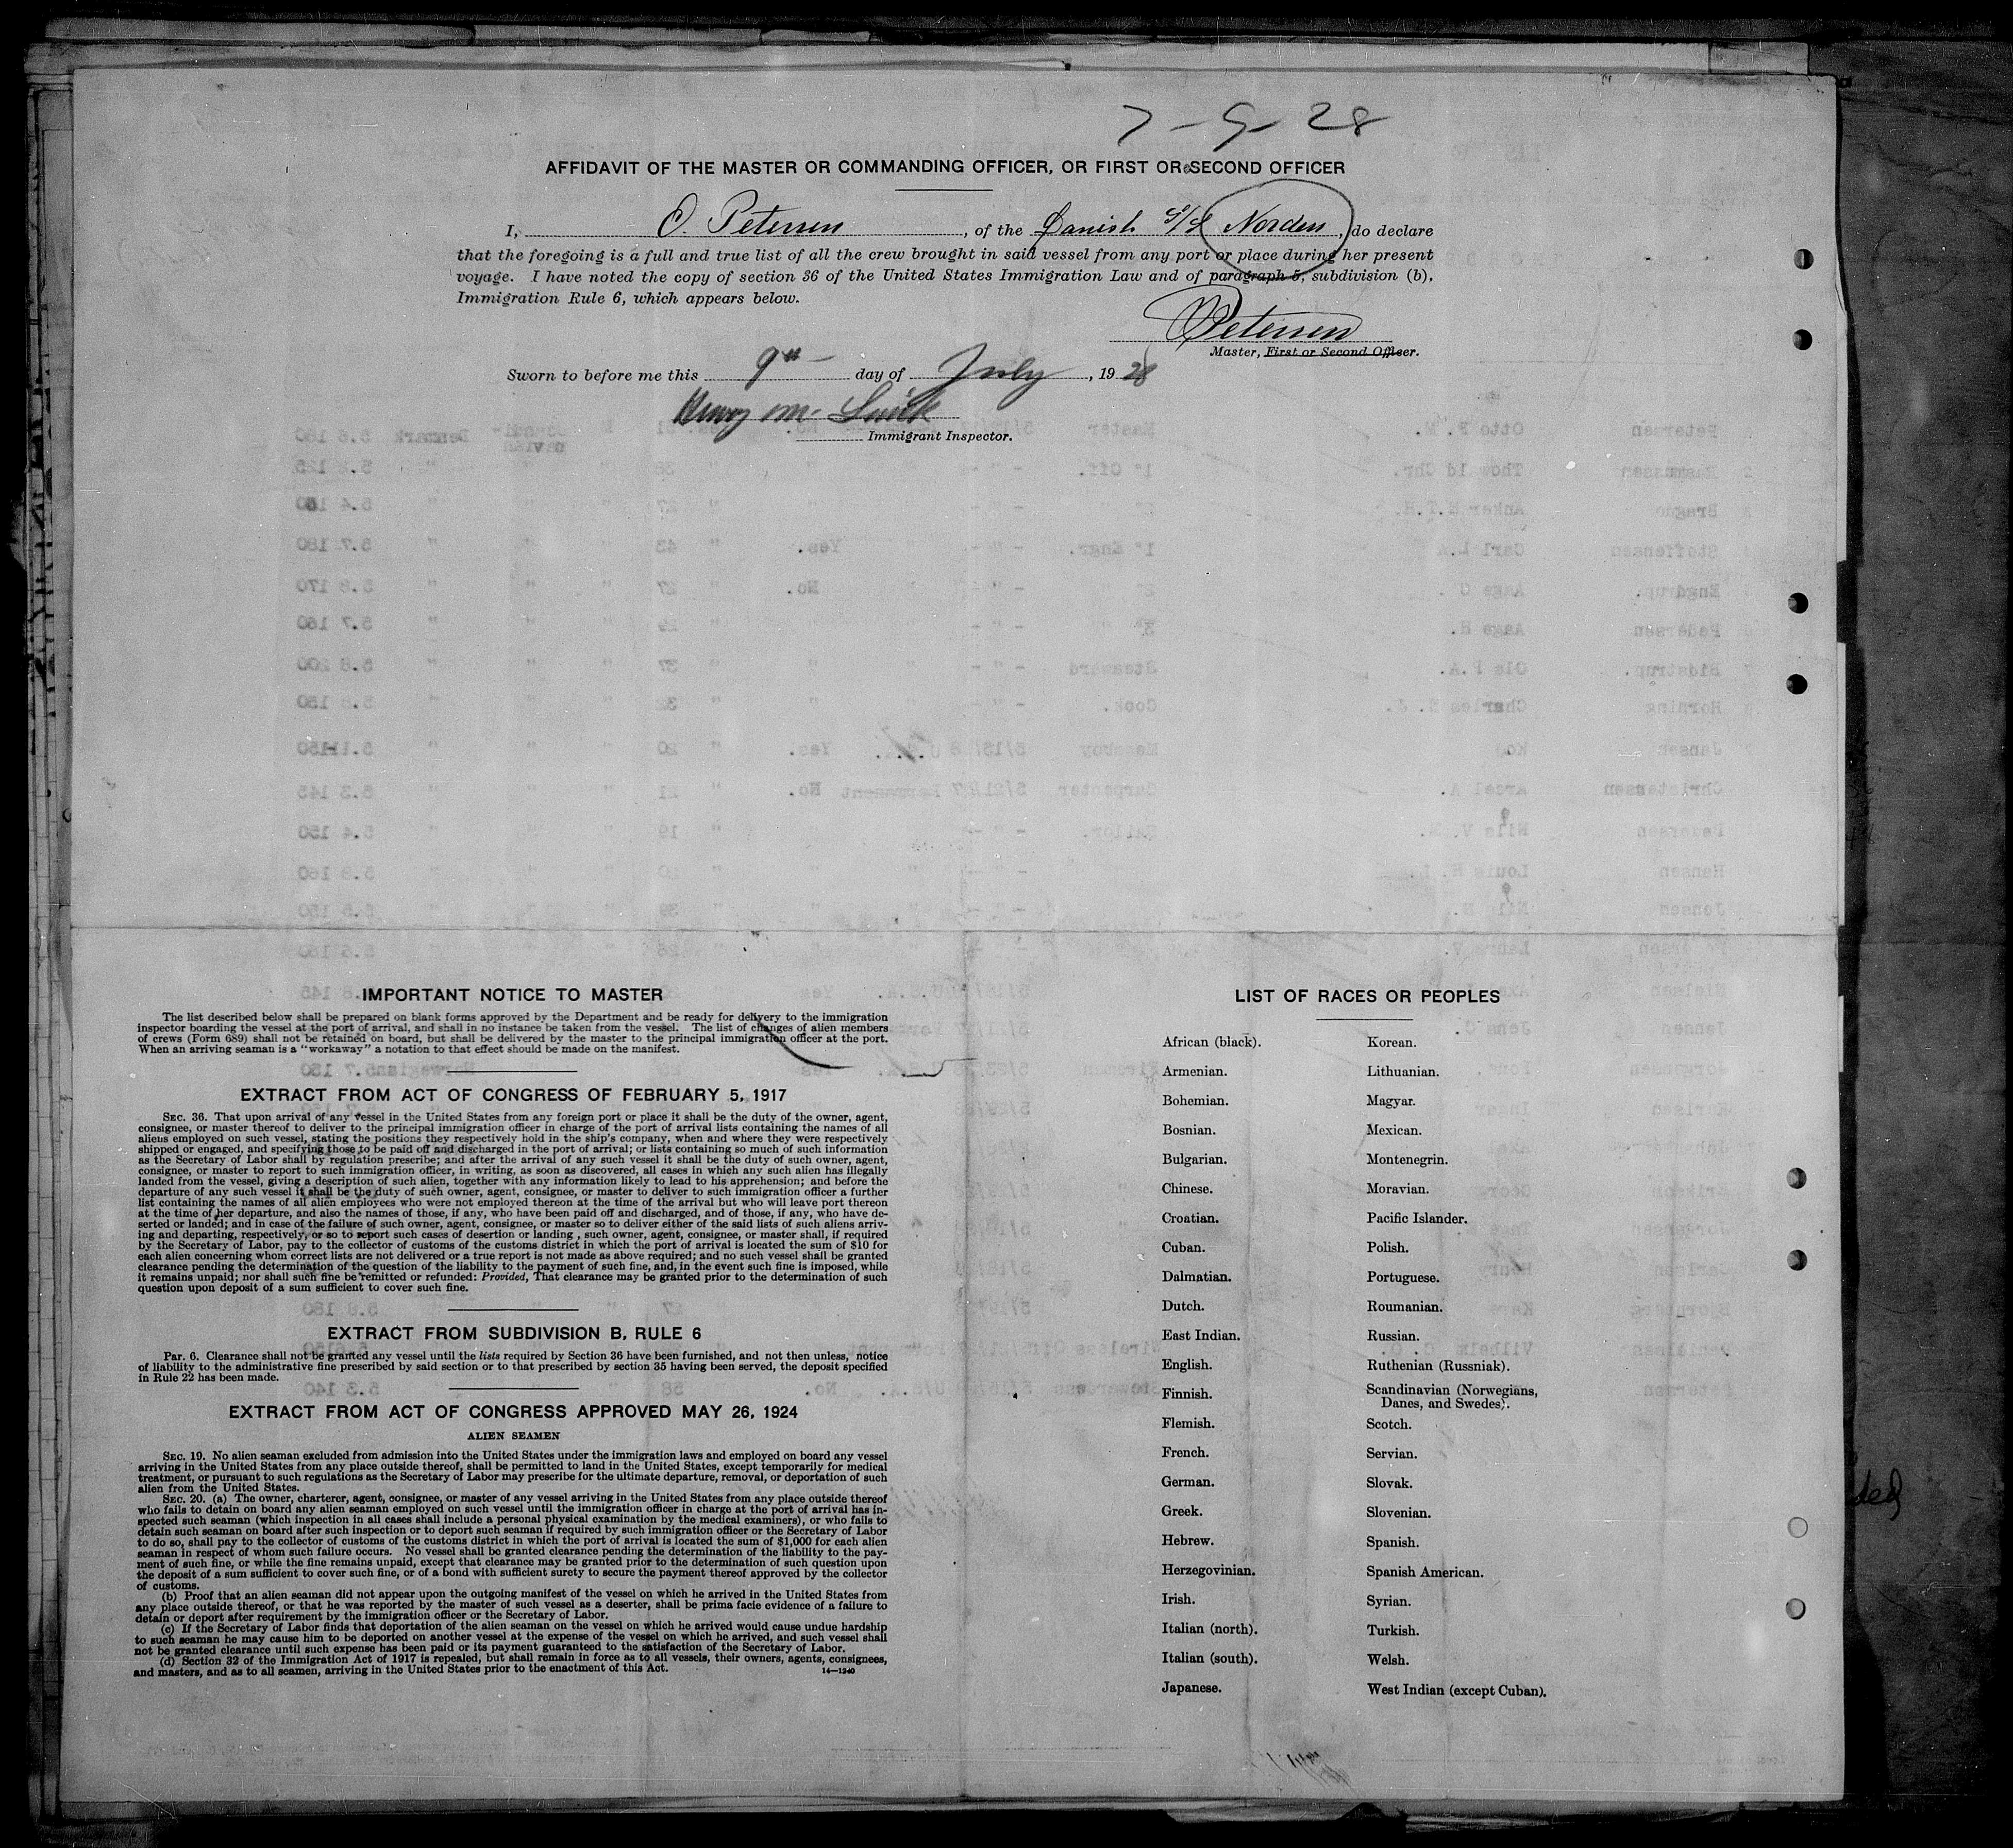 7-9-28
AFFIDAVIT OF THE MASTER OR COMMANDING OFFICER, OR FIRST OR SECOND OFFICER
I, O. Petersen, of the Danish S/S Norden, do declare
that the foregoing is a full and true list of all the crew brought in said vessel from any port or place during her present
voyage. I have noted the copy of section 36 of the United States Immigration Law and of paragraph 5, subdivision (b),
Immigration Rule 6, which appears below.
OPetersen
Master, First or Second Officer.
Sworn to before me this 9th day of July, 1928
Immigrant Inspector.
IMPORTANT NOTICE TO MASTER
The list described below shall be prepared on blank forms approved by the Department and be ready for delivery to the immigration
inspector boarding the vessel at the port of arrival, and shall in no instance be taken from the vessel. The list of changes of alien members
of crews (Form 689) shall not be retained on board, but shall be delivered by the master to the principal immigration officer at the port.
When an arriving seaman is a "workaway" a notation to that effect should be made on the manifest.
EXTRACT FROM ACT OF CONGRESS OF FEBRUARY 5, 1917
SEC. 36. That upon arrival of any vessel in the United States from any foreign port or place it shall be the duty of the owner, agent,
consignee, or master thereof to deliver to the principal immigration officer in charge of the port of arrival lists containing the names of all
aliens employed on such vessel, stating the positions they respectively hold in the ship's company, when and where they were respectively
shipped or engaged, and specifying those to be paid off and discharged in the port of arrival; or lists containing so much of such information
as the Secretary of Labor shall by regulation prescribe; and after the arrival of any such vessel it shall be the duty of such owner, agent,
consignee, or master to report to such immigration officer, in writing, as soon as discovered, all cases in which any such alien has illegally
landed from the vessel, giving a description of such alien, together with any information likely to lead to his apprehension; and before the
departure of any such vessel it shall be the duty of such owner, agent, consignee, or master to deliver to such immigration officer a further
list containing the names of all alien employees who were not employed thereon at the time of the arrival but who will leave port thereon
at the time of her departure, and also the names of those, if any, who have been paid off and discharged, and of those, if any, who have de-
serted or landed; and in case of the failure of such owner, agent, consignee, or master so to deliver either of the said lists of such aliens arriv-
ing and departing, respectively, or so to report such cases of desertion or landing , such owner, agent, consignee, or master shall, if required
by the Secretary of Labor, pay to the collector of customs of the customs district in which the port of arrival is located the sum of $10 for
each alien concerning whom correct lists are not delivered or a true report is not made as above required; and no such vessel shall be granted
clearance pending the determination of the question of the liability to the payment of such fine, and, in the event such fine is imposed, while
it remains unpaid; nor shall such fine be remitted or refunded: Provided, That clearance may be granted prior to the determination of such
question upon deposit of a sum sufficient to cover such fine.
EXTRACT FROM SUBDIVISION B, RULE 6
Par. 6. Clearance shall not be granted any vessel until the lists required by Section 36 have been furnished, and not then unless, notice
of liability to the administrative fine prescribed by said section or to that prescribed by section 35 having been served, the deposit specified
in Rule 22 has been made.
EXTRACT FROM ACT OF CONGRESS APPROVED MAY 26, 1924
ALIEN SEAMEN
SEC. 19. No alien seaman excluded from admission into the United States under the immigration laws and employed on board any vessel
arriving in the United States from any place outside thereof, shall be permitted to land in the United States, except temporarily for medical
treatment, or pursuant to such regulations as the Secretary of Labor may prescribe for the ultimate departure, removal, or deportation of such
alien from the United States.
SEC. 20. (a) The owner, charterer, agent, consignee, or master of any vessel arriving in the United States from any place outside thereof
who fails to detain on board any alien seaman employed on such vessel until the immigration officer in charge at the port of arrival has in-
spected such seaman (which inspection in all cases shall include a personal physical examination by the medical examiners), or who fails to
detain such seaman on board after such inspection or to deport such seaman if required by such immigration officer or the Secretary of Labor
to do so, shall pay to the collector of customs of the customs district in which the port of arrival is located the sum of $1,000 for each alien
seaman in respect of whom such failure occurs. No vessel shall be granted clearance pending the determination of the liability to the pay-
ment of such fine, or while the fine remains unpaid, except that clearance may be granted prior to the determination of such question upon
the deposit of a sum sufficient to cover such fine, or of a bond with sufficient surety to secure the payment thereof approved by the collector
of customs.
(b) Proof that an alien seaman did not appear upon the outgoing manifest of the vessel on which he arrived in the United States from
any place outside thereof, or that he was reported by the master of such vessel as a deserter, shall be prima facie evidence of a failure to
detain or deport after requirement by the immigration officer or the Secretary of Labor.
(c) If the Secretary of Labor finds that deportation of the alien seaman on the vessel on which he arrived would cause undue hardship
to such seaman he may cause him to be deported on another vessel at the expense of the vessel on which he arrived, and such vessel shall
not be granted clearance until such expense has been paid or its payment guaranteed to the satisfaction of the Secretary of Labor.
(d) Section 32 of the Immigration Act of 1917 is repealed, but shall remain in force as to all vessels, their owners, agents, consignees,
and masters, and as to all seamen, arriving in the United States prior to the enactment of this Act.
14—1240
LIST OF RACES OR PEOPLES
African (black).
Armenian.
Bohemian.
Bosnian.
Bulgarian.
Chinese.
Croatian.
Cuban.
Dalmatian.
Dutch.
East Indian.
English.
Finnish.
Flemish.
French.
German.
Greek.
Hebrew.
Herzegovinian.
Irish.
Italian (north).
Italian (south).
Japanese.
Korean.
Lithuanian.
Magyar.
Mexican.
Montenegrin.
Moravian.
Pacific Islander.
Polish.
Portuguese.
Roumanian.
Russian.
Ruthenian (Russniak).
Scandinavian (Norwegians,
Danes, and Swedes).
Scotch.
Servian.
Slovak.
Slovenian.
Spanish.
Spanish American.
Syrian.
Turkish.
Welsh.
West Indian (except Cuban).